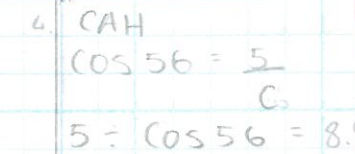 6. CAH
cos 56 = 5/c
5 ÷ cos 56 = 8.